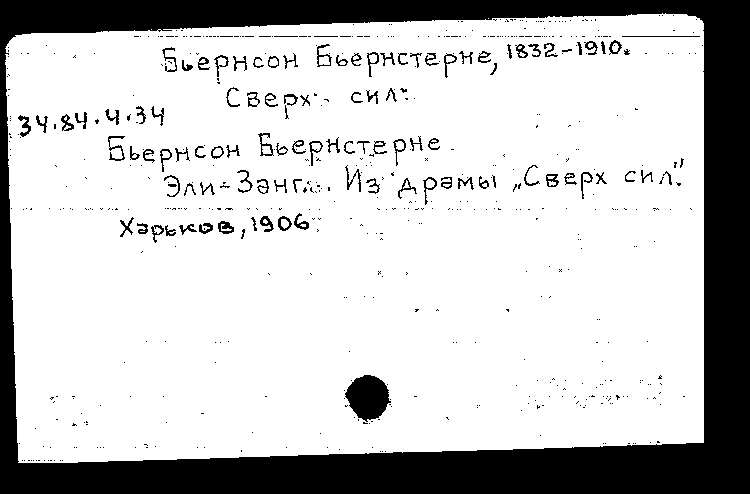 Бьернсон Бьернстерне, 1832-1910.
Сверх сил.
34.84.4.34
Бьернсон Бьернстерне.
Эли-Занг... Из драмы „Сверх сил".
Харьков, 1906